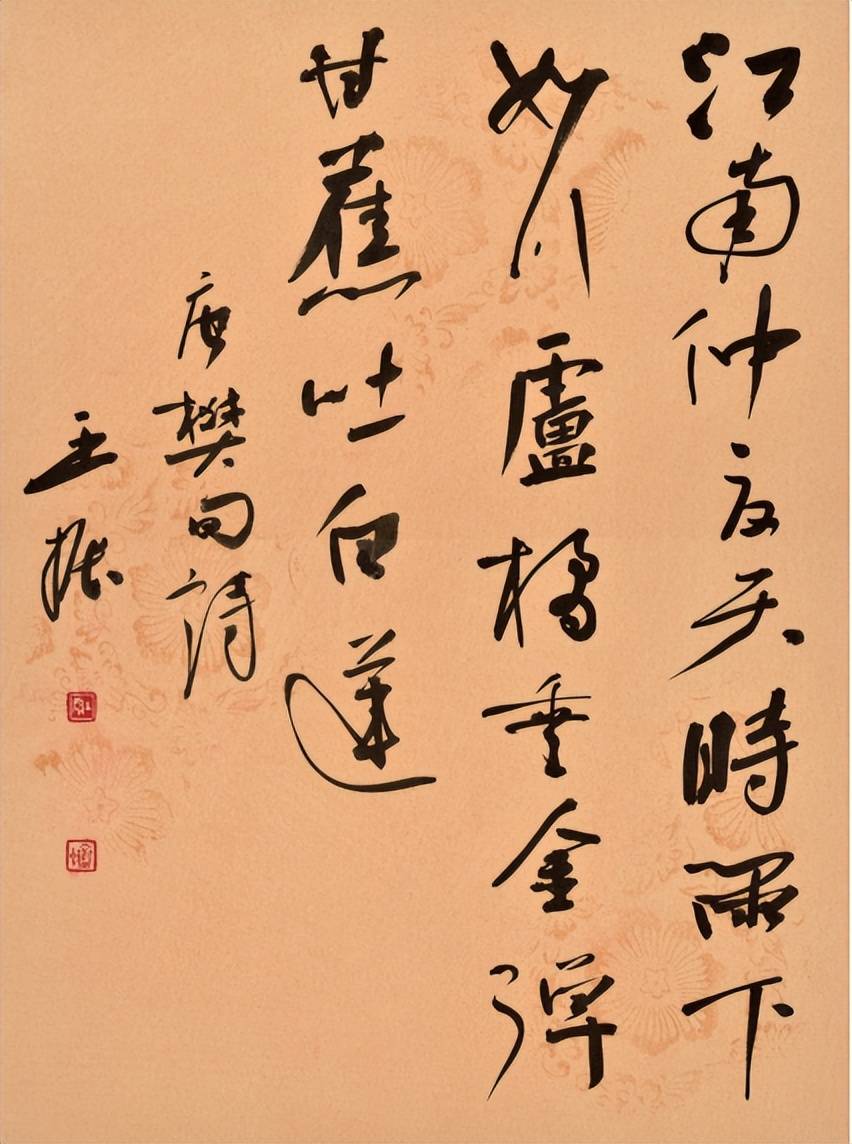 江南仲夏天時雨下
如川盧橘垂金彈
甘蕉吐白蓮
唐樊詩
王振